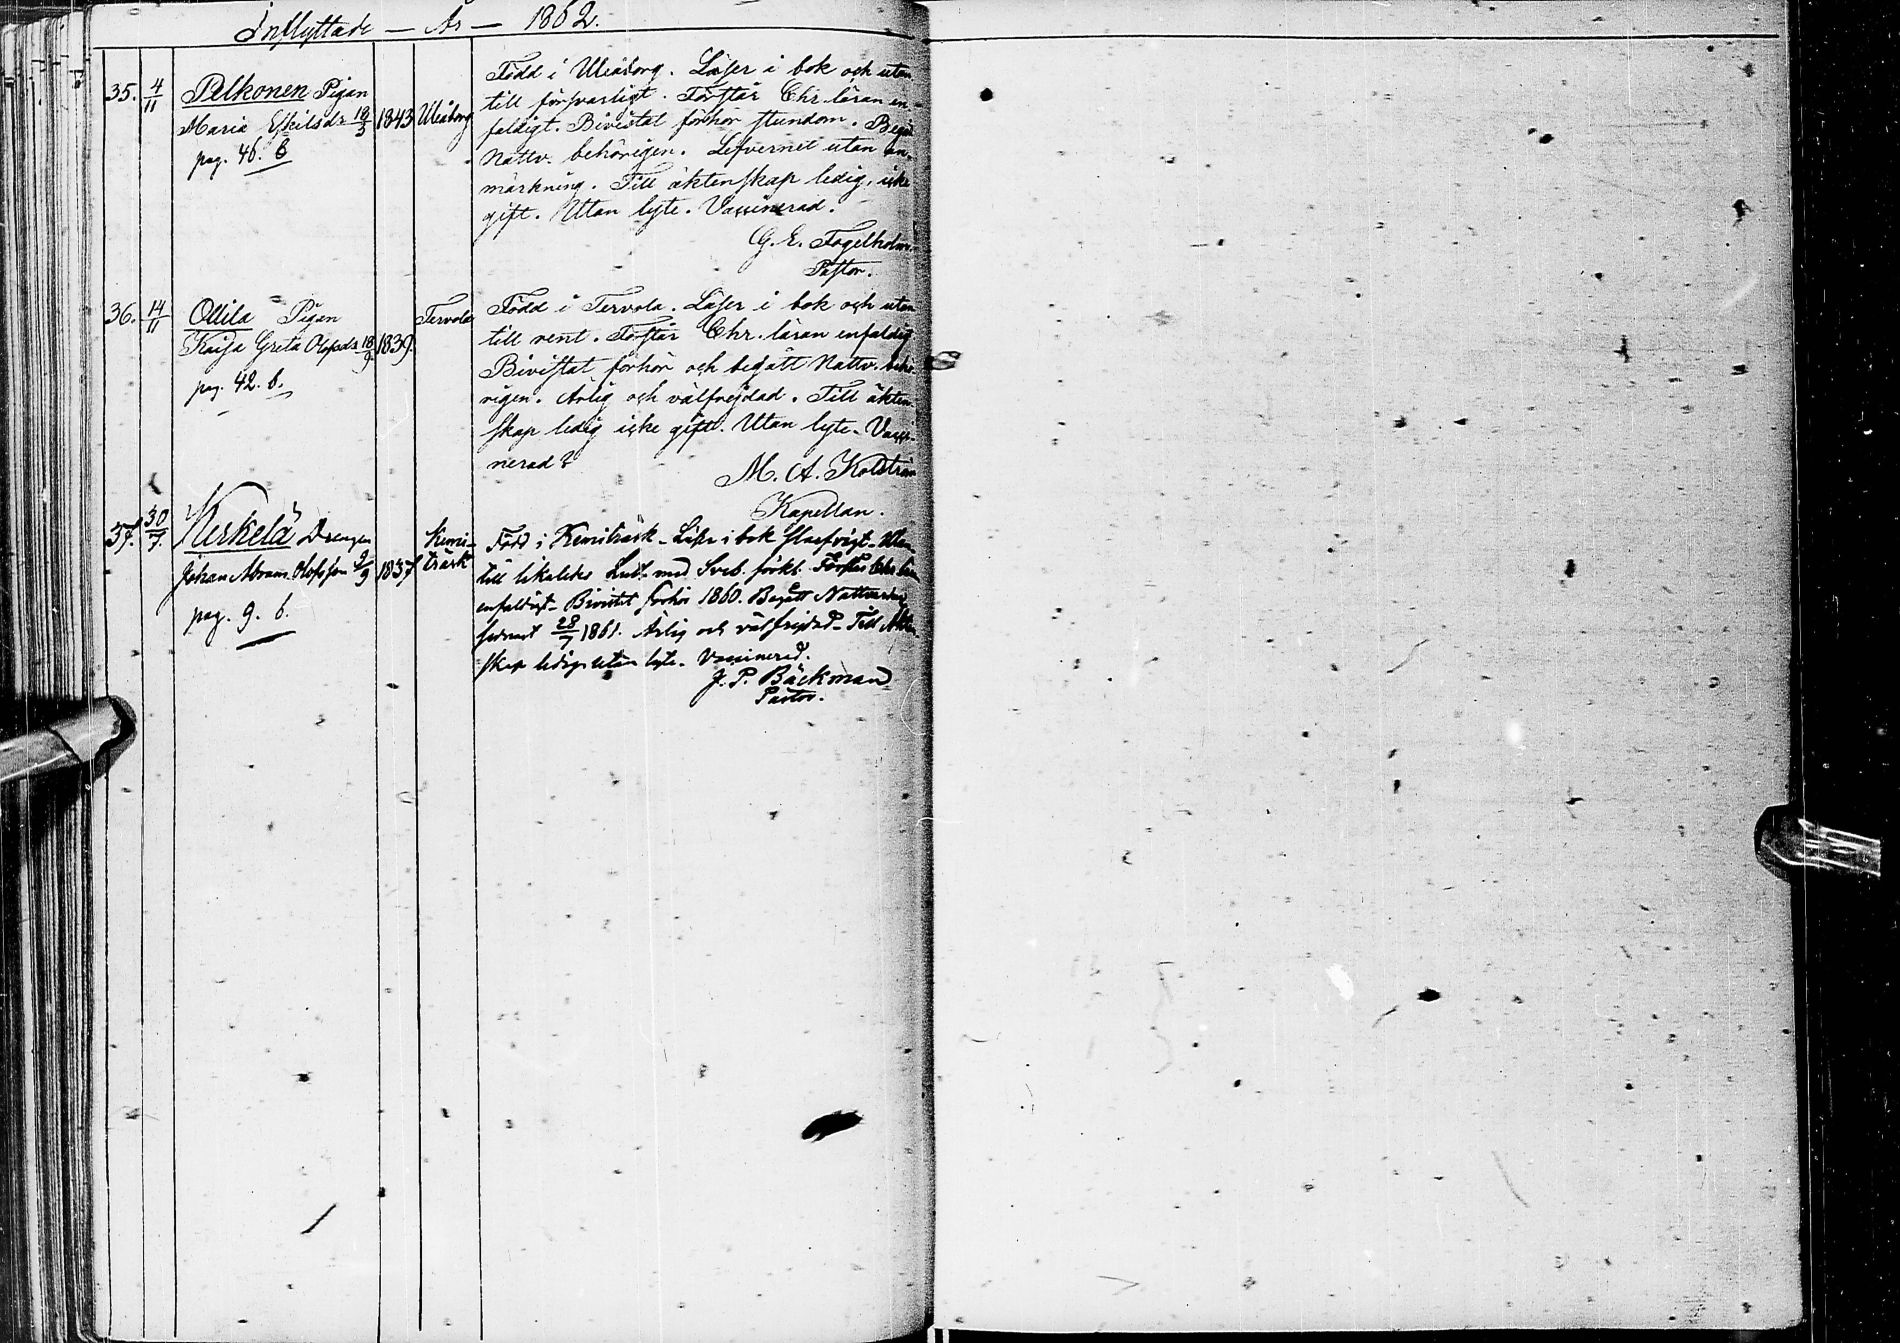 Inflyttade — År — 1862.
35. 4/11 Pelkonen Pigan
Maria Eskilsdr 18/3 1843 Uleåborg
pag. 46. b
Född i Uleåborg. Läser i bok och utan
till försvarligt. Förstår Chr. läran en-
faldigt. Bivistat förhör stundom. Begått
Nattv. behörigen. Lefvernet utan an-
märkning. Till äktenskap ledig, icke
gift. Utan lyte. Vaccinerad.
G. E. Fogelholm
Pastor.
36. 14/11 Ollila Pigan
Kaisa Greta Olofsdr 18/9 1839. Tervola
pag. 42. b.
Född i Tervola. Läser i bok och utan
till rent. Förstår Chr. läran enfaldigt
Bivistat förhör och begått Nattv. behö-
rigen. Ärlig och välfrejdad. Till äkten-
skap ledig icke gift. Utan lyte. Vacci-
nerad?
M. A. Kolström
Kapellan.
37. 30/7. Kerkelä Drengen
Johan Abram Olofsson 9/9 1837 Kemi-
träsk
pag. 9. b.
Född i Kemiträsk. Läser i bok Utan-
till likaledes Luth. med Sveb. förkl. Förstår Chr. läran
enfaldigt. Bivistat förhör 1860. Begått Nattvarden
senast 28/7 1861. Ärlig och välfrejdad. Till Äkten-
skap ledig utan lyte. Vaccinerad.
J. P. Bäckman
Pastor.